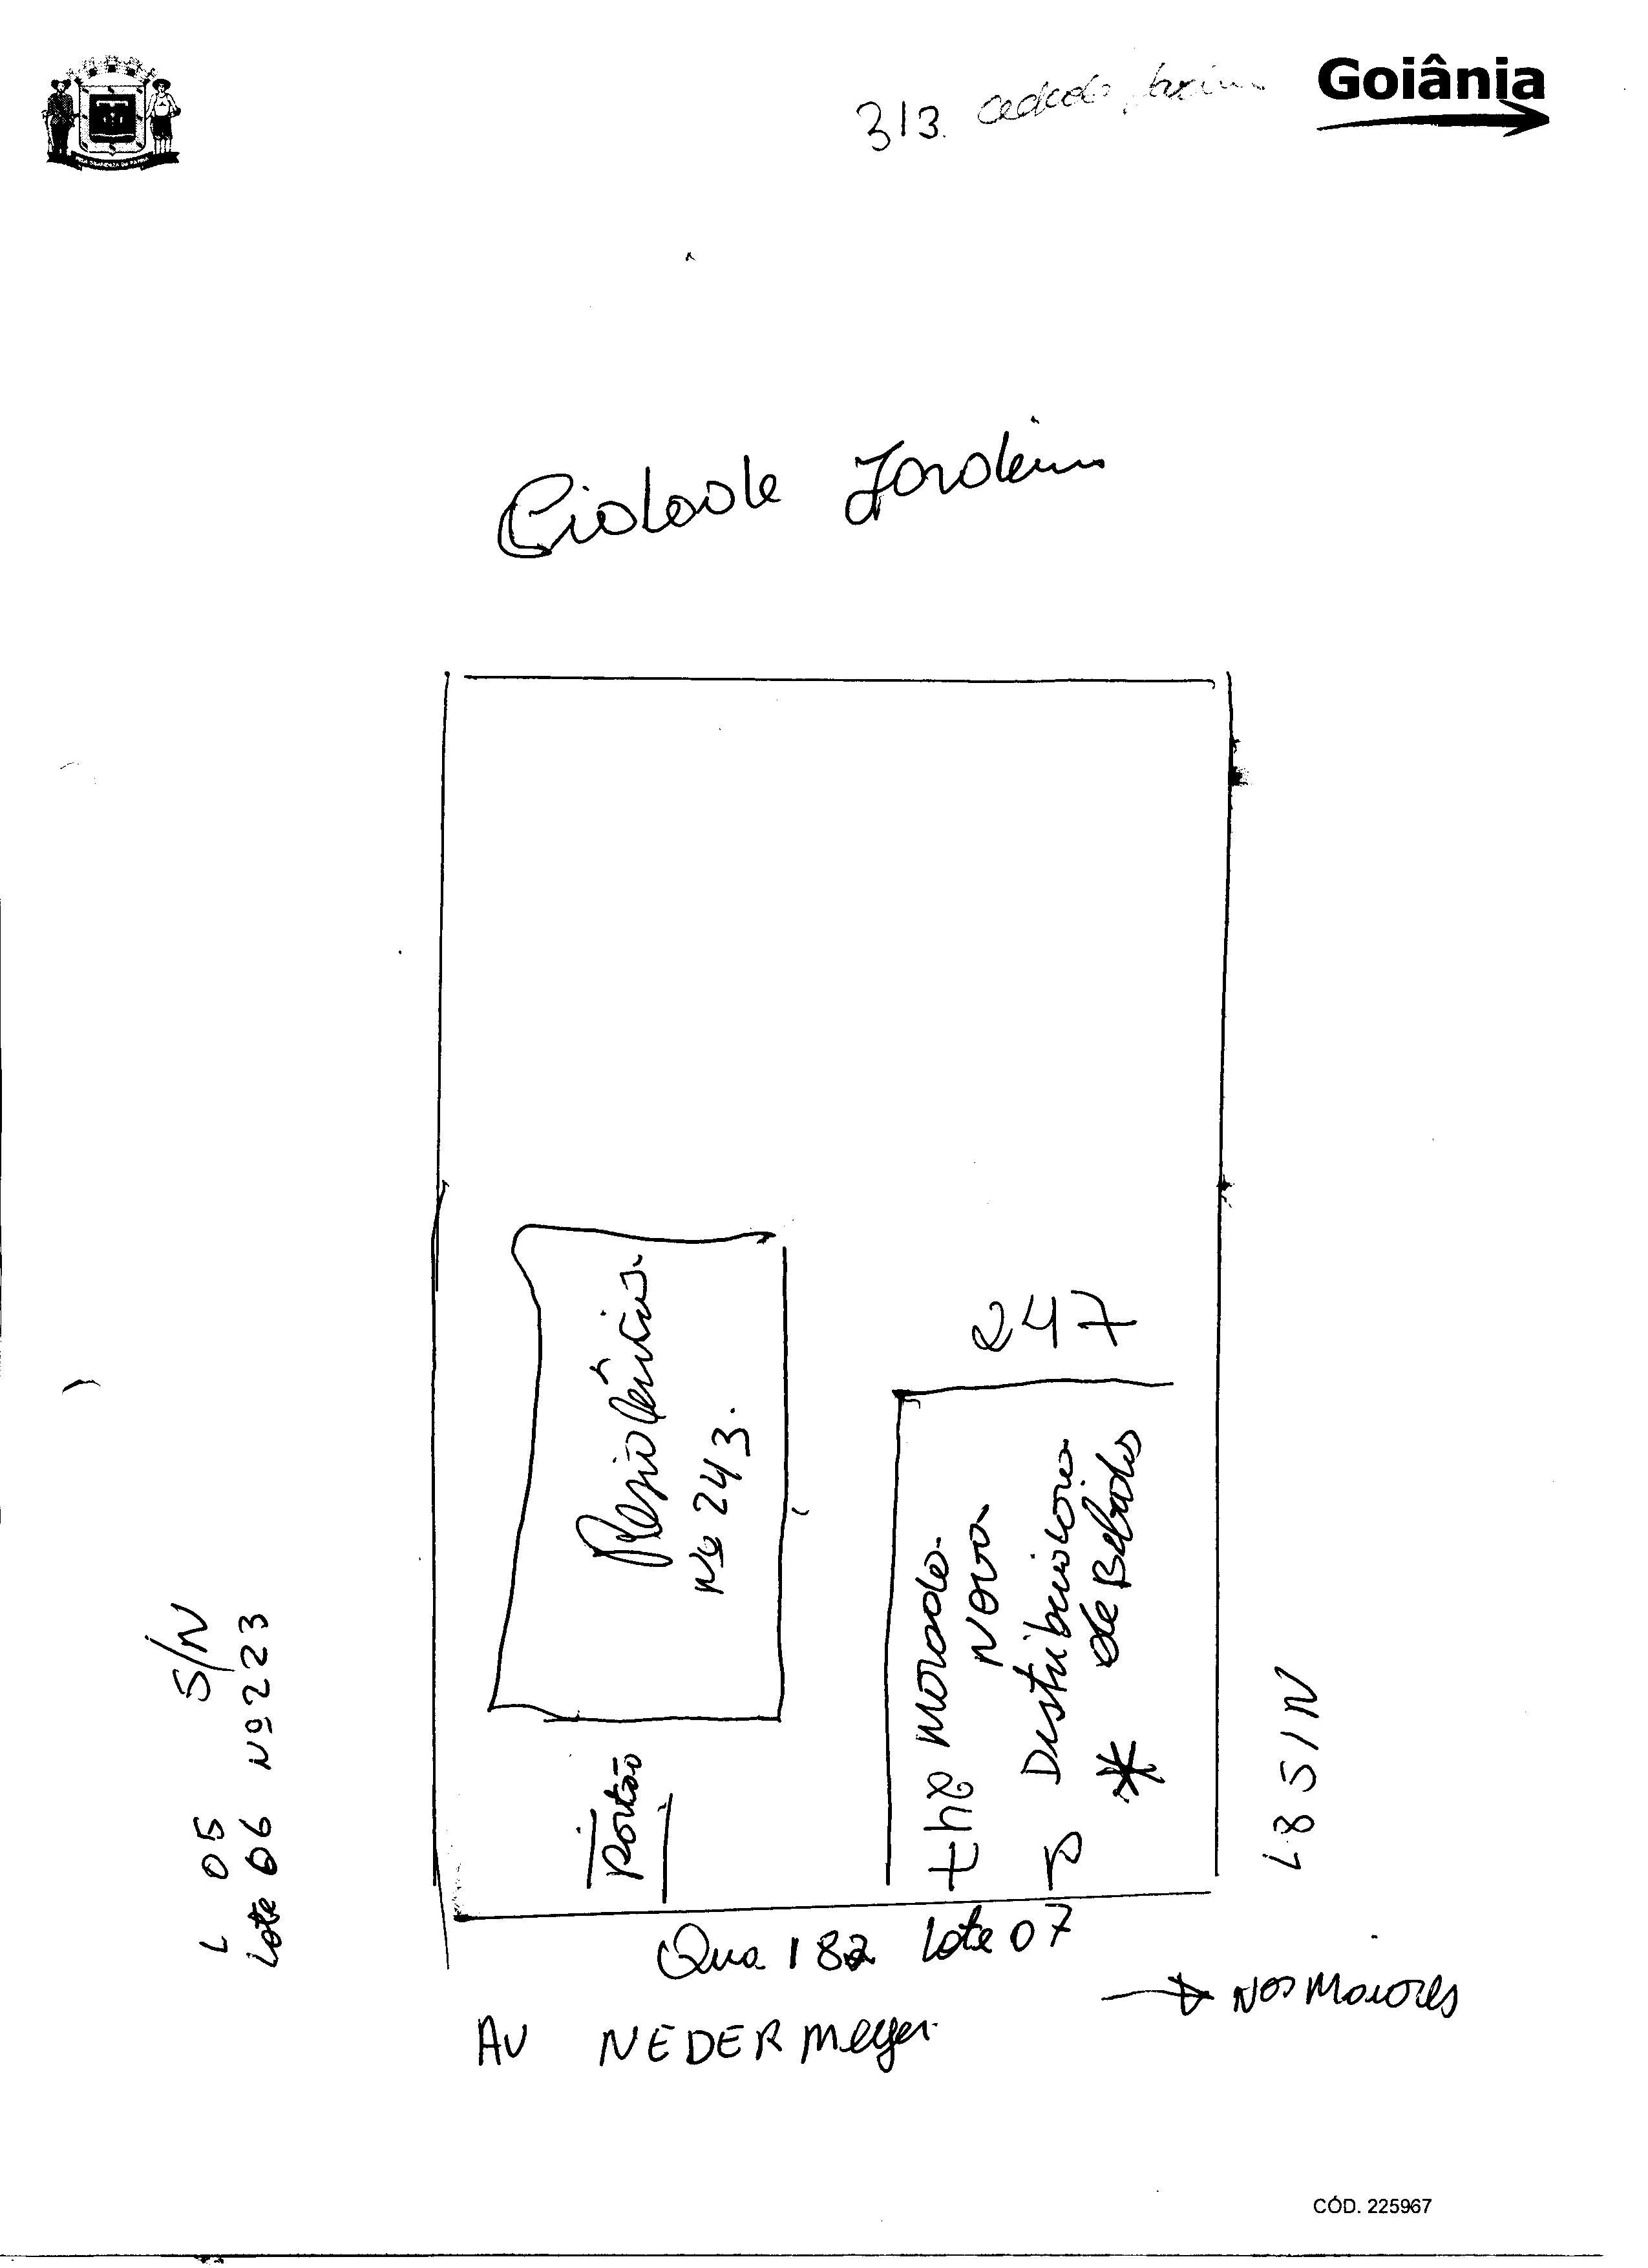 Goiânia
313. Cidade Jardim
Cidade Jardim
Residência
Nº 243.
247
the morada
Nova
Distribuidora
* de Bebidas
Portão
L 05 S/N
Lote 06 Nº 223
L 8 S/N
Qua 182 Lote 07
→ Nos Maiores
AV NEDER Meyer
CÓD. 225967